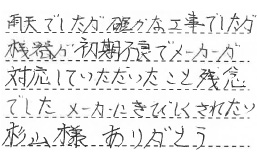 雨天でしたが確かな工事でしたが
機器が初期不良でメーカーが
対応していただいたこと残念
でした メーカーにきびしくされたい
杉山様 ありがとう